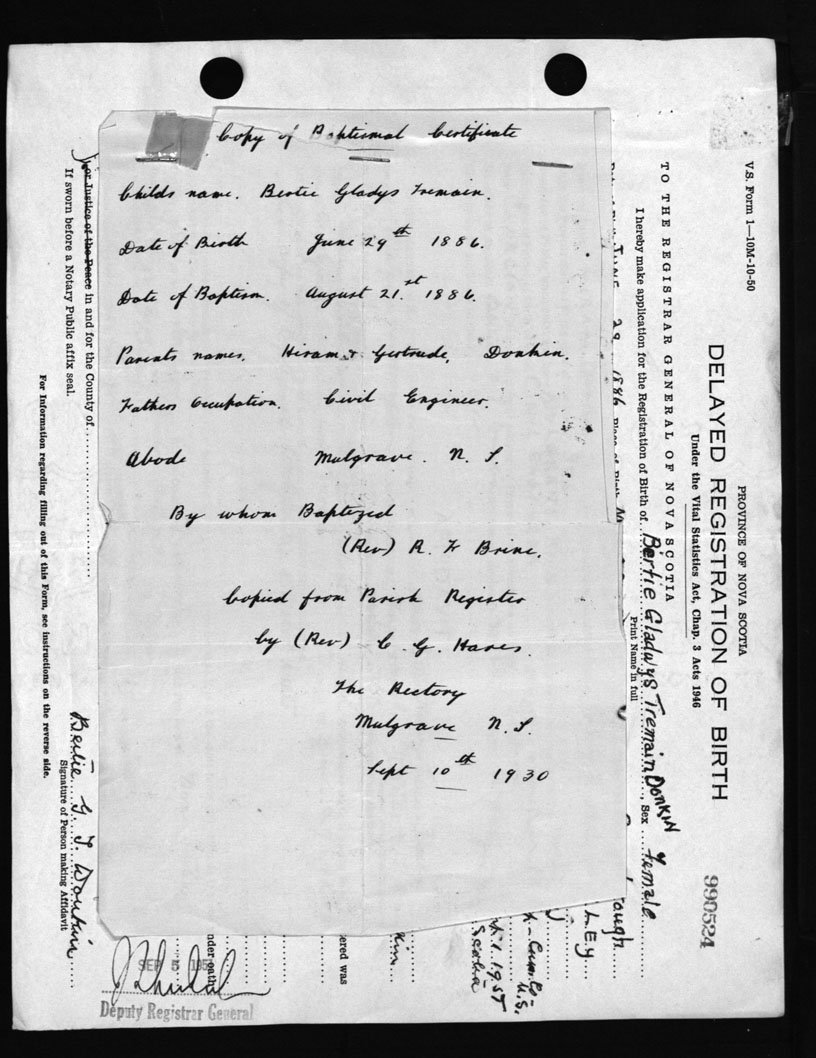 Copy of Baptismal Certificate
Childs name. Bertie Gladys Tremain.
Date of Birth June 29th 1886.
Date of Baptism. August 21.st 1886.
Parents names. Hiram & Gertrude. Donkin.
Fathers Occupation. Civil Engineer.
Abode Mulgrave. N. S.
By whom Baptized
(Rev) R. F Brine.
Copied from Parish Register
by (Rev) C. G. Hares.
The Rectory
Mulgrave N. S.
Sept 10th 1930
V.S. Form 1—10M-10-50
PROVINCE OF NOVA SCOTIA
DELAYED REGISTRATION OF BIRTH
990524
Under the Vital Statistics Act, Chap. 3 Acts 1946
TO THE REGISTRAR GENERAL OF NOVA SCOTIA
I hereby make application for the Registration of Birth of Bertie Gladwys Tremain Donkin, Sex female
Print Name in full
JUNE 29 1886
ough
LEY
N.S.
1.1957
Scotia
ered was
nder oath
or Justice of the Peace in and for the County of
If sworn before a Notary Public affix seal.
Bertie G T Donkin
Signature of Person making Affidavit
For Information regarding filling out of this Form, see instructions on the reverse side.
SEP 5 195
Deputy Registrar General